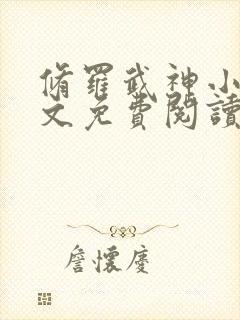 脩羅武神小
文免費閱讀
詹懷慶